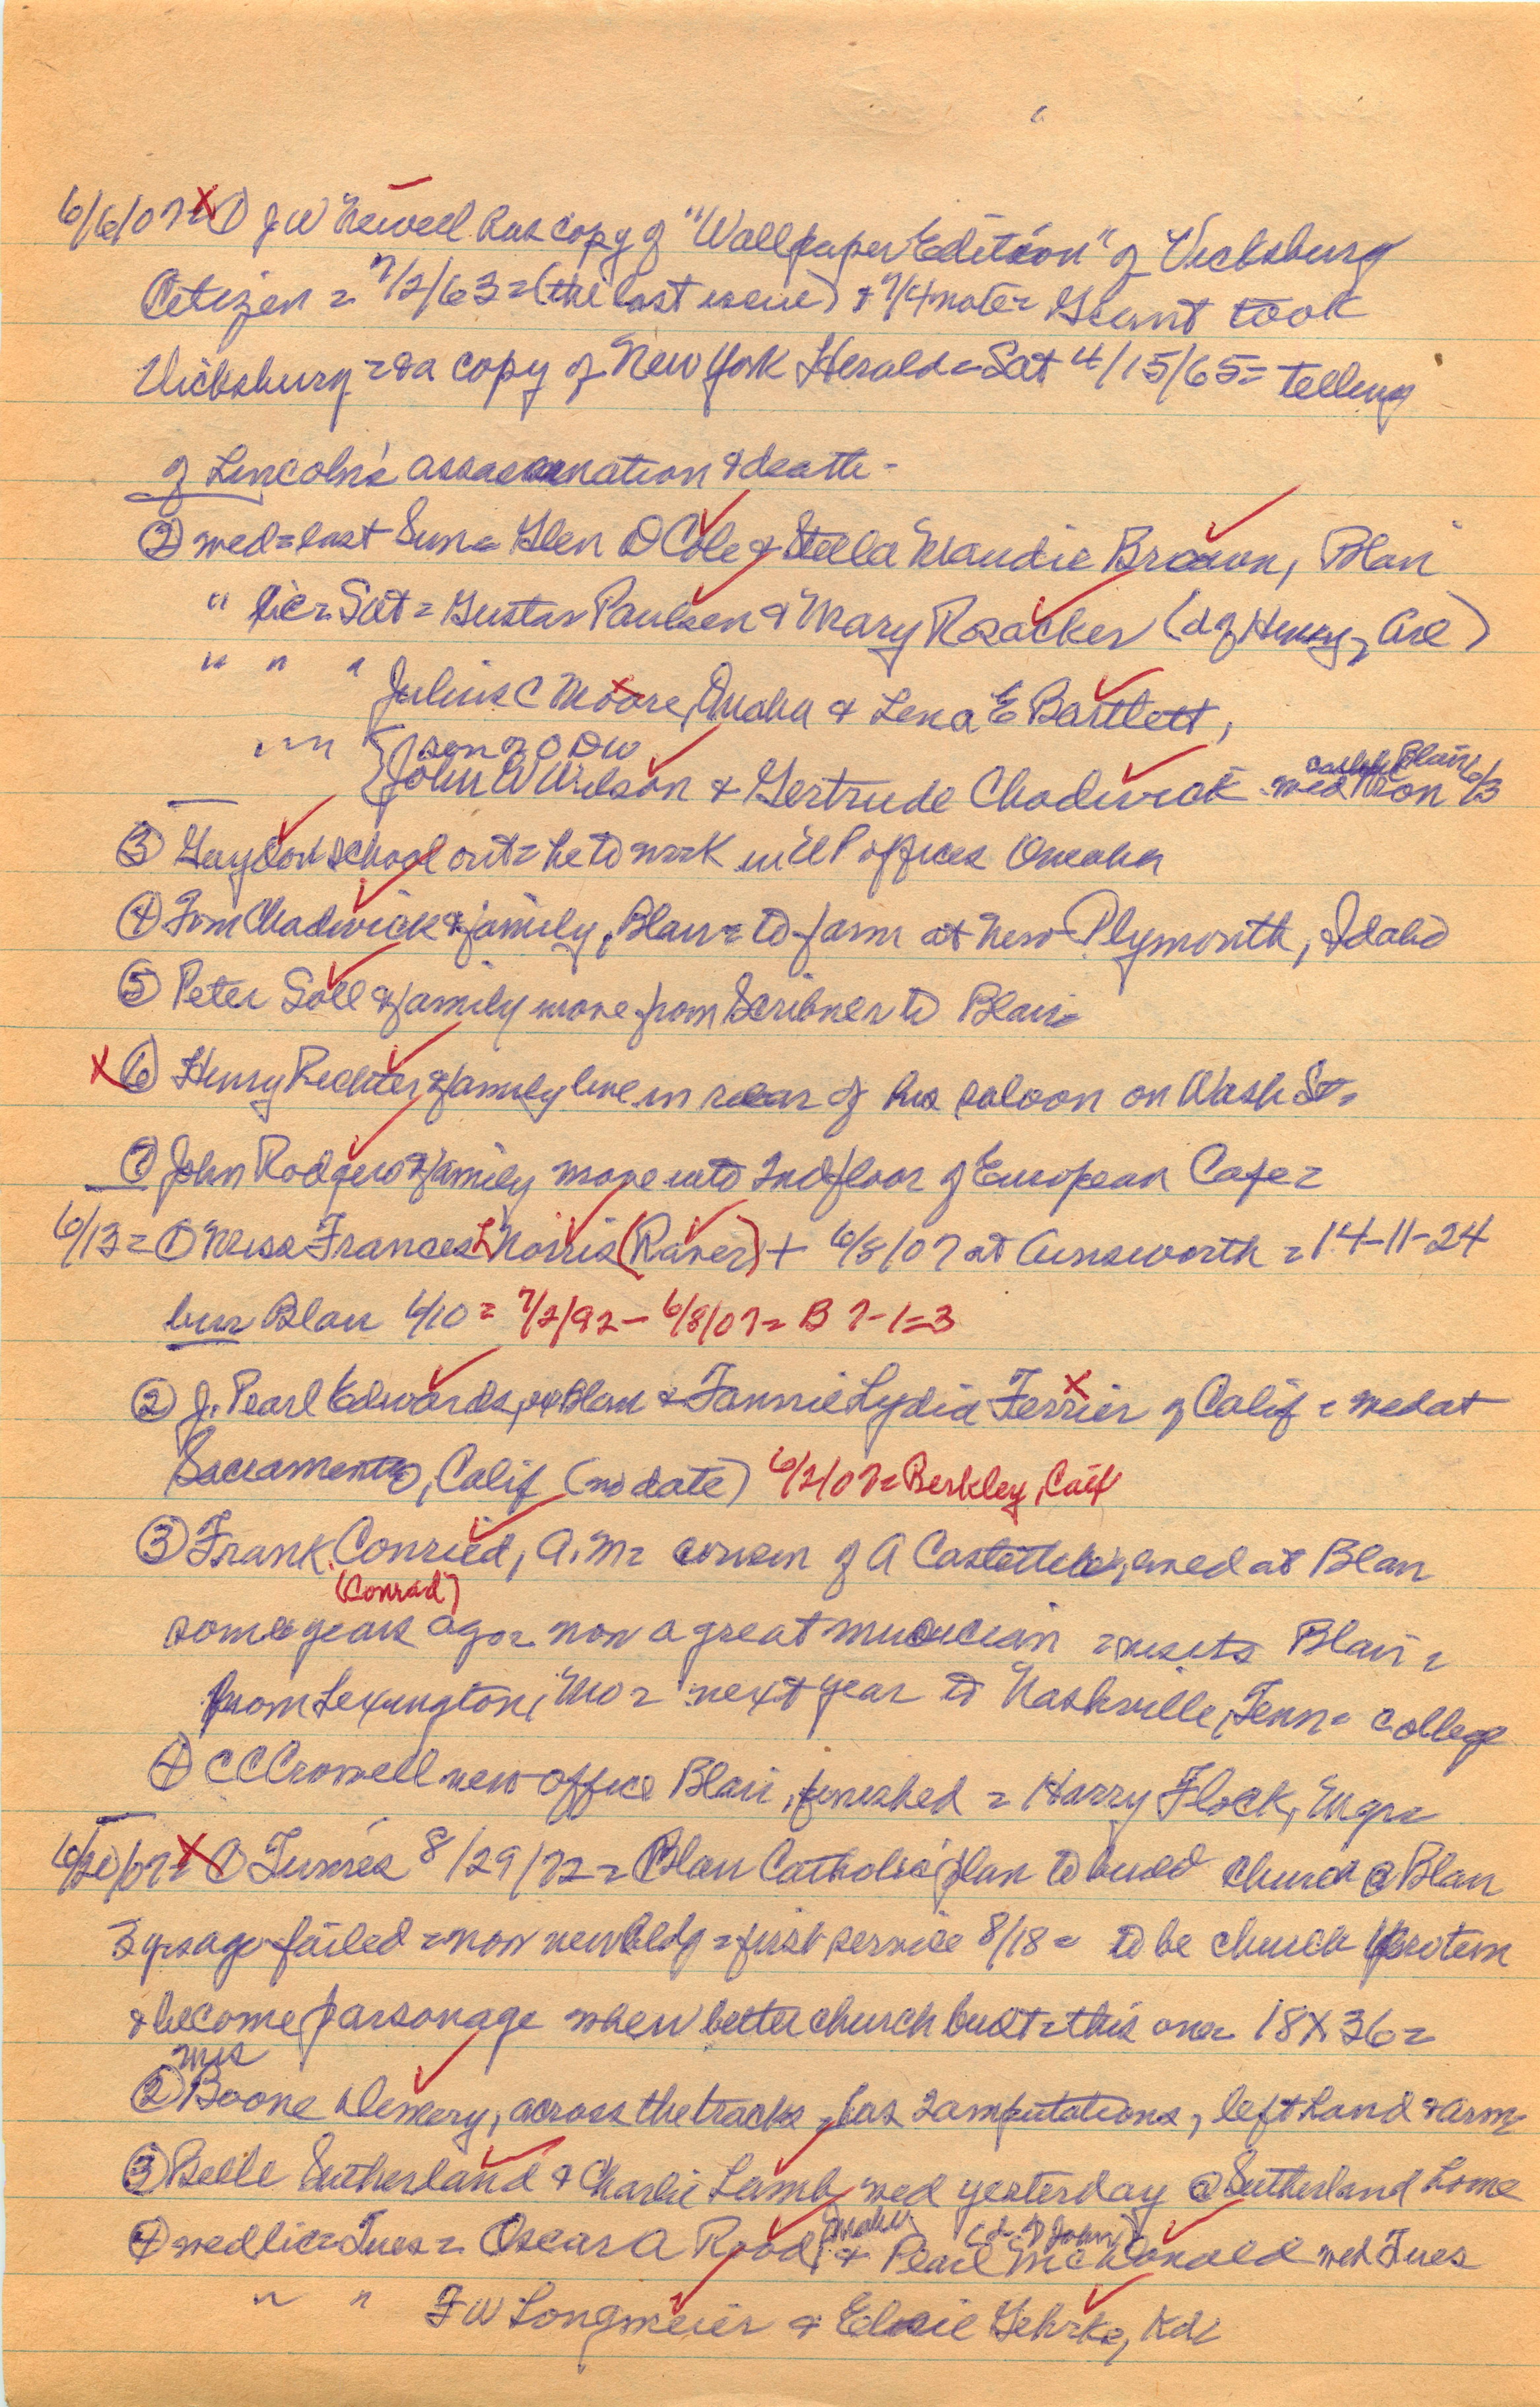 6/6/07 = X ① J W Newell has copy of "Wallpaper Edition" of Vicksburg
Citizen = 7/2/63 = (the last issue) & 7/4 note = Grant took
Vicksburg = & a copy of New York Herald = Sat 4/15/65 = telling
of Lincoln's assassination & death -
② wed = last Sun = Glen D Cole & Stella Maudie Brown, Blair
" lic = Sat = Gustav Paulsen & Mary Rosacker (d of Henry, Arl)
" " " Julius C Moore, Omaha & Lena E Bartlett,
" " " { son of O D W
John W Wilson & Gertrude Chadwick wed Mon 6/3
③ Gaydou school out = he to work in UP offices Omaha
④ Tom Chadwick & family, Blair = to farm at New Plymouth, Idaho
⑤ Peter Soll & family move from Scribner to Blair =
X ⑥ Henry Richter & family live in rear of his saloon on Wash St =
⑦ John Rodgers & family move into 2nd floor of European Cafe =
6/13 = ① Miss Frances L Norris (Raver) + 6/8/07 at Ainsworth = 14-11-24
bur Blair 6/10 = 7/2/92 - 6/8/07 = B 7-1=3
② J. Pearl Edwards, ex Blair & Fannie Lydia Ferrier of Calif = wed at
Sacramento, Calif (no date) 6/2/07 = Berkley, Calif
③ Frank Conried, A.M = cousin of A Castetter, lived at Blair
(Conrad)
some years ago = now a great musician = visits Blair =
from Lexington, Mo = next year to Nashville, Tenn = college
④ C C Crowell new office Blair, finished = Harry Flock, Mgr =
6/20/07 = X ① Times 8/29/72 = Blair Catholic plan to build church @ Blair
3 yrs ago failed = now new bldg = first service 8/18 = to be church protem
& become parsonage when better church built = this one 18 X 36 =
mrs
② Boone Demery, across the tracks, has 2 amputations, left hand & arm
③ Belle Sutherland & Charlie Lamb wed yesterday @ Sutherland home
④ wed lic = Tues = Oscar A Rood, Omaha & Pearl McDonald (d of John) wed Tues
" " F W Longmeier & Elsie Gehrke, Kd